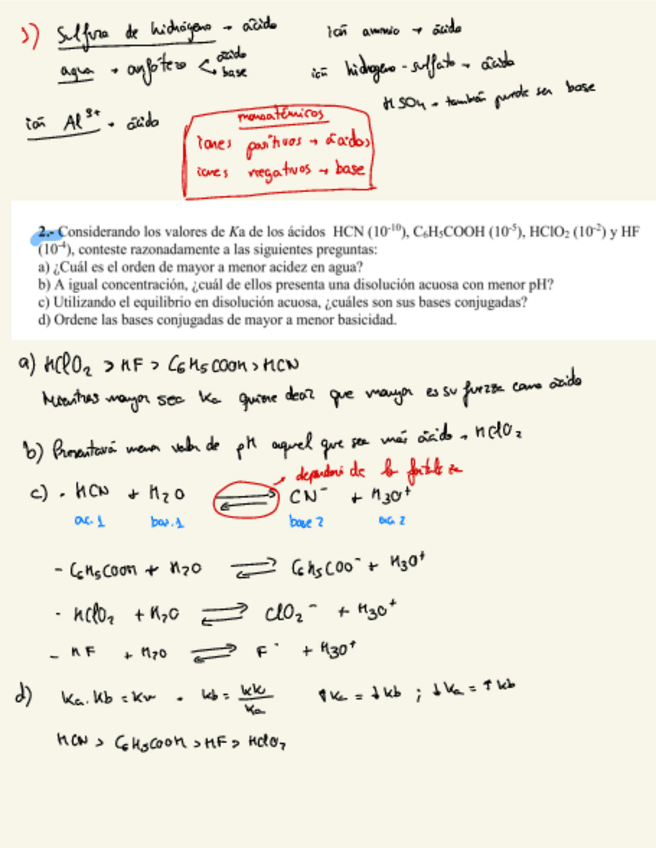 1) Sulfuro de hidrógeno → ácido
ión amonio → ácido
agua → anfótero < ácido
base
ión hidrogeno-sulfato → ácido
HSO4 → también puede ser base
ión Al 3+ → ácido
monoatómicos
iones positivos → ácidos
iones negativos → base
2.- Considerando los valores de Ka de los ácidos HCN (10-10), C6H5COOH (10-5), HClO2 (10-2) y HF
(10-4), conteste razonadamente a las siguientes preguntas:
a) ¿Cuál es el orden de mayor a menor acidez en agua?
b) A igual concentración, ¿cuál de ellos presenta una disolución acuosa con menor pH?
c) Utilizando el equilibrio en disolución acuosa, ¿cuáles son sus bases conjugadas?
d) Ordene las bases conjugadas de mayor a menor basicidad.
a) HClO2 > HF > C6H5COOH > HCN
Mientras mayor sea Ka quiere decir que mayor es su fuerza como ácido
b) Presentará menor valor de pH aquel que sea más ácido → HClO2
→ dependerá de la
c) · HCN + H2O ⇌ CN- + H3O+
ac. 1 bas. 1 base 2 ac. 2
- C6H5COOH + H2O ⇌ C6H5COO- + H3O+
· HClO2 + H2O ⇌ ClO2- + H3O+
- HF + H2O ⇌ F- + H3O+
d) Ka · Kb = Kw → Kb = Kw/Ka ↑Ka = ↓Kb ; ↓Ka = ↑Kb
HCN > C6H5COOH > HF > HClO2